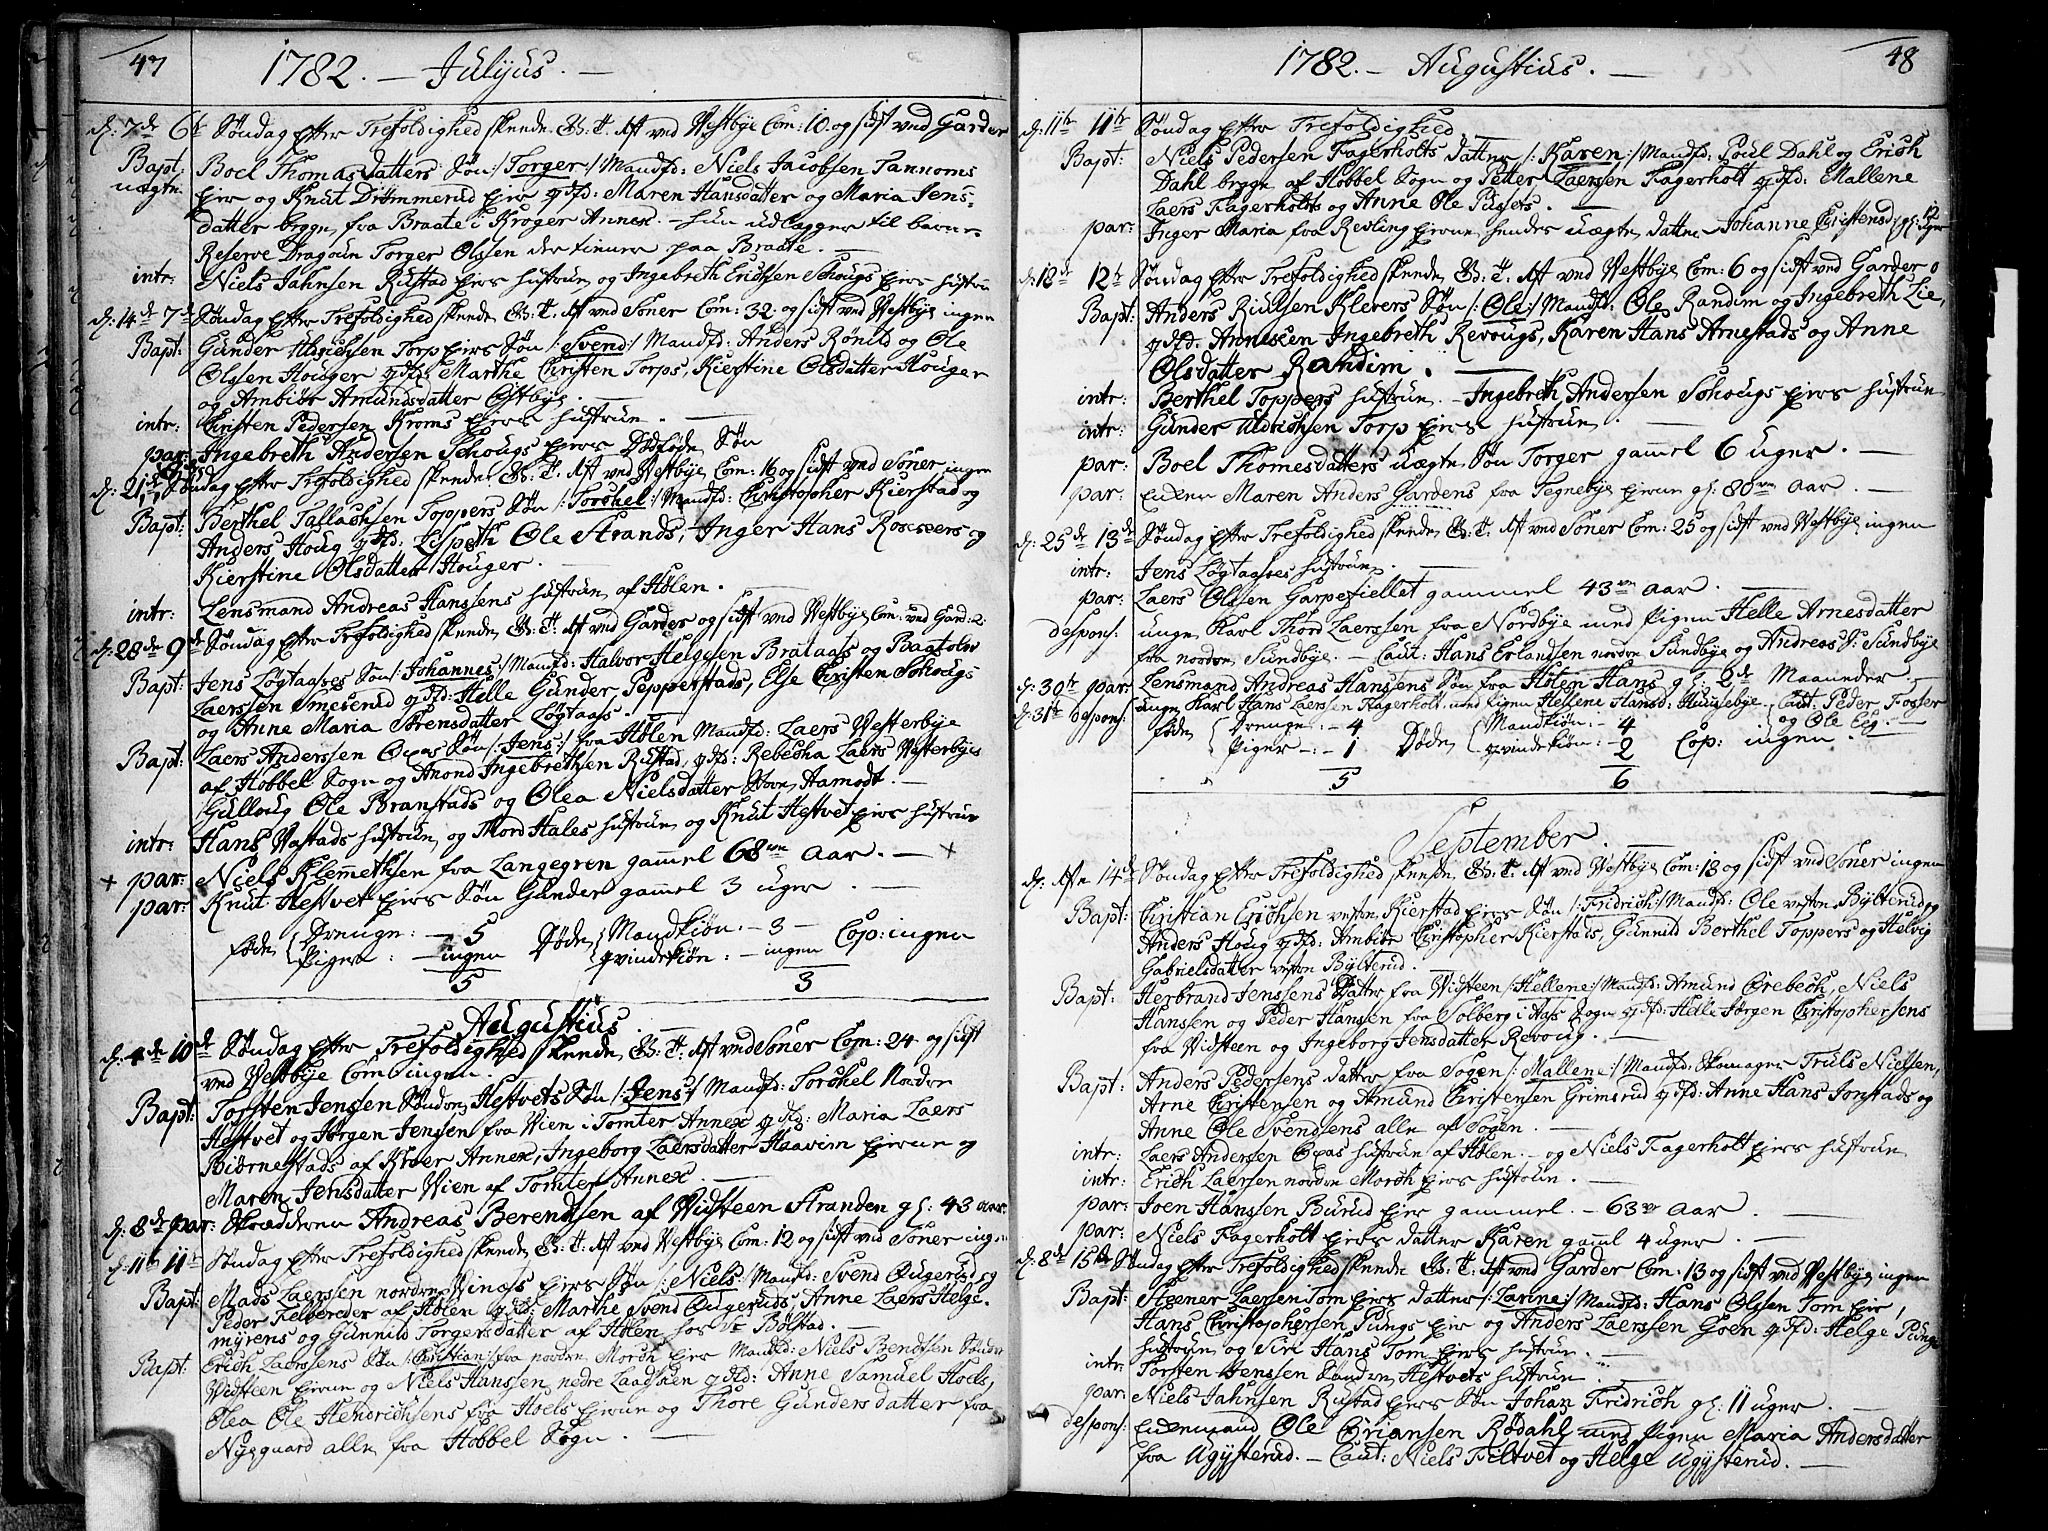 47
1782. — Julyus. —
d: 7de 6te Søndag efter Trefoldighed skeede Gs: T: Aft ved Westbye Com: 10. og sidst ved Garder
Bapt: Boel Thomasdatters Søn /: Torger :/ Mandfd: Niels Jacobsen Tannoms
uægte. Eier og Knut Drømmerud Eier qdfd: Maren Hansdatter og Maria Jens:
datter begge fra Braate i Kroger Annex. — hun udlægger til barne-
Reserve Dragoun Torger Olssen der tiener paa Braate. —
intr: Niels Jahnsen Rustad Eiers hustrue og Ingebreth Erichsen Schougs Eiers hustrue
d: 14de 7de Søndag efter Trefoldighed skeede Gs: T: Aft ved Soner Com: 32. og sidst ved Westbye ingen
Bapt: Gunder Ulrichsen Torp Eiers Søn /: Svend :/ Mandfd: Anders Rønild og Ole
Olssen Houger qdfd: Marthe Christen Torps, Kierstine Olsdatter Houger
og Ambiør Amundsdatter Østbye. —
intr: Christen Pedersen Kroms Eiers hustrue. —
par: Ingebreth Andersen Schougs Eiers Dødfødde Søn
d: 21de Søndag efter Trefoldighed skeede Gs: T: Aft ved Westbye Com: 16 og sidst ved Soner ingen
Bapt: Berthel Tallachsen Toppers Søn /: Torchel :/ Mandfd: Christopher Kierstad og
Anders Houg qdfd: Lisbeth Ole Strands, Inger Hans Roseers og
Kierstine Olsdatter Houger. —
intr: Lensmand Andreas Hanssens hustrue af Hølen. —
d: 28de 9de Søndag efter Trefoldighed skeede Gs: T: Aft ved Garder og sidst ved Westbye Com: ved Gard: 2.
Bapt: Jens Løgtaases Søn /: Johannes :/ Mandfd: Halvor Helgesen Brataas og Baatolv
Laerssen Smeserud qdfd: Helle Gunder Pepperstads, Else Christen Schougs
og Anne Maria Sørensdatter Løgtaas. —
Bapt: Laers Anderssen Oxas Søn /: Jens :/ fra Hølen Mandfd: Laers Westerbye
af Hobbel Sogn og Anond Ingebrethsen Rustad, qdfd: Rebecha Laers Westerbyes
Gulloug Ole Branstads og Olea Nielsdatter Store Aamodt. —
intr: Hans Wastads hustrue og Thord Hales hustrue og Knut Hestvet Eiers hustrue
+ par: Niels Klemmethsen fra Langegren gammel 68ve Aar. — +
par: Knut Hestvet Eiers Søn Gunder gammel 3 uger. —
fødde { Drenge: — 5 Døde { Mandkiøn: — 3 — Cop: ingen
Piger: — ingen qvindekiøn: — ingen
5 3
Augustius. —
d: 4de 10de Søndag efter Trefoldighed skeede Gs: T: Aft ved Soner Com: 24. og sidst
ved Westbye Com: ingen. —
Bapt: Torsten Jenssen Søndre Hestvets Søn /: Jens :/ Mandfd: Torchel Nordre
Hestvet og Jørgen Jenssen fra Wien i Tomter Annex qdfd: Maria Laers
Biørnestads af Kroer Annex, Ingeborg Laersdatter Haavim Eierne og
Maren Jensdatter Wien af Tomter Annex. —
d: 8de par: Skrædderen Andreas Berendtsen af Widsteen Stranden gl: 43 aar.
d: 11te 11te Søndag efter Trefoldighed skeede Gs: T: Aft ved Westbye Com: 12 og sidst ved Soner ingen
Bapt: Mads Laerssen nordre Winaas Eiers Søn /: Niels :/ Mandfd: Svend Qugerud, og
Peder Felbereder af Hølen qdfd: Marthe Svend Qugeruds, Anne Laers Helge-
myrens og Gunnild Torgersdatter af Hølen hos Sr Bølstad. —
Bapt: Erich Laerssens Søn /: Christian :/ fra nordre Morch Eier Mandfd: Niels Bendtsen Søndre
Widsteen Eierne og Niels Hanssen nedre Laadseen qdfd: Anne Samuel Hoels,
Olea Ole Hendrichsens fra Hoels Eierne og Thore Gundersdatter fra
Nygaard alle fra Hobbel Sogn. —
1782. — Augustius. —
48
d: 11te 11te Søndag efter Trefoldighed
Bapt: Niels Pedersen Fagerholts datter /: Karen :/ Mandfd: Poul Dahl og Erich
Dahl begge af Hobbel Sogn og Petter Laerssen Fagerholt qdfd: Mallene
Laers Fagerholts og Anne Ole Pusets. —
par: Inger Maria fra Resling Eierne hendes uægte datter Johanne Christensd: gl: 12 uger
d: 18de 12te Søndag efter Trefoldighed skeede Gs: T: Aft ved Westbye Com: 6 og sidst ved Garder 0
Bapt: Anders Riulsen Klevers Søn /: Ole :/ Mandfd: Ole Randim og Ingebreth Lie,
qdfd: Annesen Ingebreth Revougs, Karen Hans Arnestads og Anne
Olsdatter Randim. —
intr: Berthel Toppers hustrue. — Ingebreth Andersen Schougs Eiers hustrue
intr: Gunder Uldrichsen Torp Eiers hustrue. —
par: Boel Thomesdatters uægte Søn Torger gammel 6 uger. —
par: Enken Maren Anders Gardens fra Tegnebye Eierne gl: 80ve Aar. —
d: 25de 13de Søndag efter Trefoldighed skeede Gs: T: Aft ved Soner Com: 25 og sidst ved Westbye ingen
intr: Jens Løgtaases hustrue. —
par: Laers Olssen Garpefiellet gammel 43ve Aar. —
despons: unge Karl Thord Laerssen fra Nordbye med Pigen Helle Arnesdatter
fra nordre Sundbye. — Caut: Hans Erlandsen nordre Sundbye og Andreas S: Sundbye
d: 30te par: Lensmand Andreas Hanssens Søn fra Hølen Hans gl: 2de Maaneder. —
d: 31te despons: unge Karl Hans Laerssen Fagerholt med Pigen Hellene Hansd: Huusebye Caut: Peder Foster
og Ole Eeg. —
fødde { Drenge — 4 Døde { Mandkiøn: — 4 Cop: ingen.
Piger — 1 qvindekiøn: — 2
5 6
September.
d: 1ste 14de Søndag efter Trefoldighed skeede Gs: T: Aft ved Westbye Com: 18 og sidst ved Soner ingen
Bapt: Christian Erichsen vestre Kierstad Eiers Søn /: Fridrich :/ Mandfd: Ole vestre Bylterud og
Anders Houg qdfd: Ambiør Christopher Kierstads, Gunnild Berthel Toppers og Helvig
Gabrielsdatter vestre Bylterud. —
Bapt: Herbrand Jenssens Datter fra Widsteen /: Hellene :/ Mandfd: Amund Ørebech, Niels
Hanssen og Peder Hanssen fra Solberg i Aas Sogn qdfd: Helle Jørgen Christophersens
fra Widsteen og Ingeborg Jensdatter Revoug. —
Bapt: Anders Pedersens datter fra Sogen /: Mallene :/ Mandfd: Skomager Truls Nielsen,
Arne Christensen og Amund Christensen Grimsrud qdfd: Anne Hans Jonstads og
Anne Ole Svendsens alle af Sogen. —
intr: Laers Andersen Oxas hustrue af Hølen. — og Niels Fagerholt Eiers hustrue
intr: Erich Laersen nordre Morch Eiers hustrue. —
par: Joen Hanssen Burud Eier gammel. — 63ve Aar. —
par: Niels Fagerholt Eiers datter Karen gaml 4 uger. —
d: 8de 15de Søndag efter Trefoldighed skeede Gs: T: Aft ved Garder Com: 13 og sidst ved Westbye ingen
Bapt: Steener Laersen Tom Eiers datter /: Larine :/ Mandfd: Hans Olssen Tom Eier,
Hans Christophersen Pungs Eier og Anders Laerssen Goen qdfd: Helge Punge
hustrue og Siri Hans Tom Eiers hustrue. —
intr: Torsten Jenssen Søndre Hestvets hustrue. —
par: Niels Jahnsen Rustad Eiers Søn Johan Fridrich gl: 11 uger. —
despons: Enkemand Ole Ørjansen Rødahl med Pigen Maria Andersdatter
fra Ugysterud. — Caut: Niels Filtvet og Helge Ugysterud. —